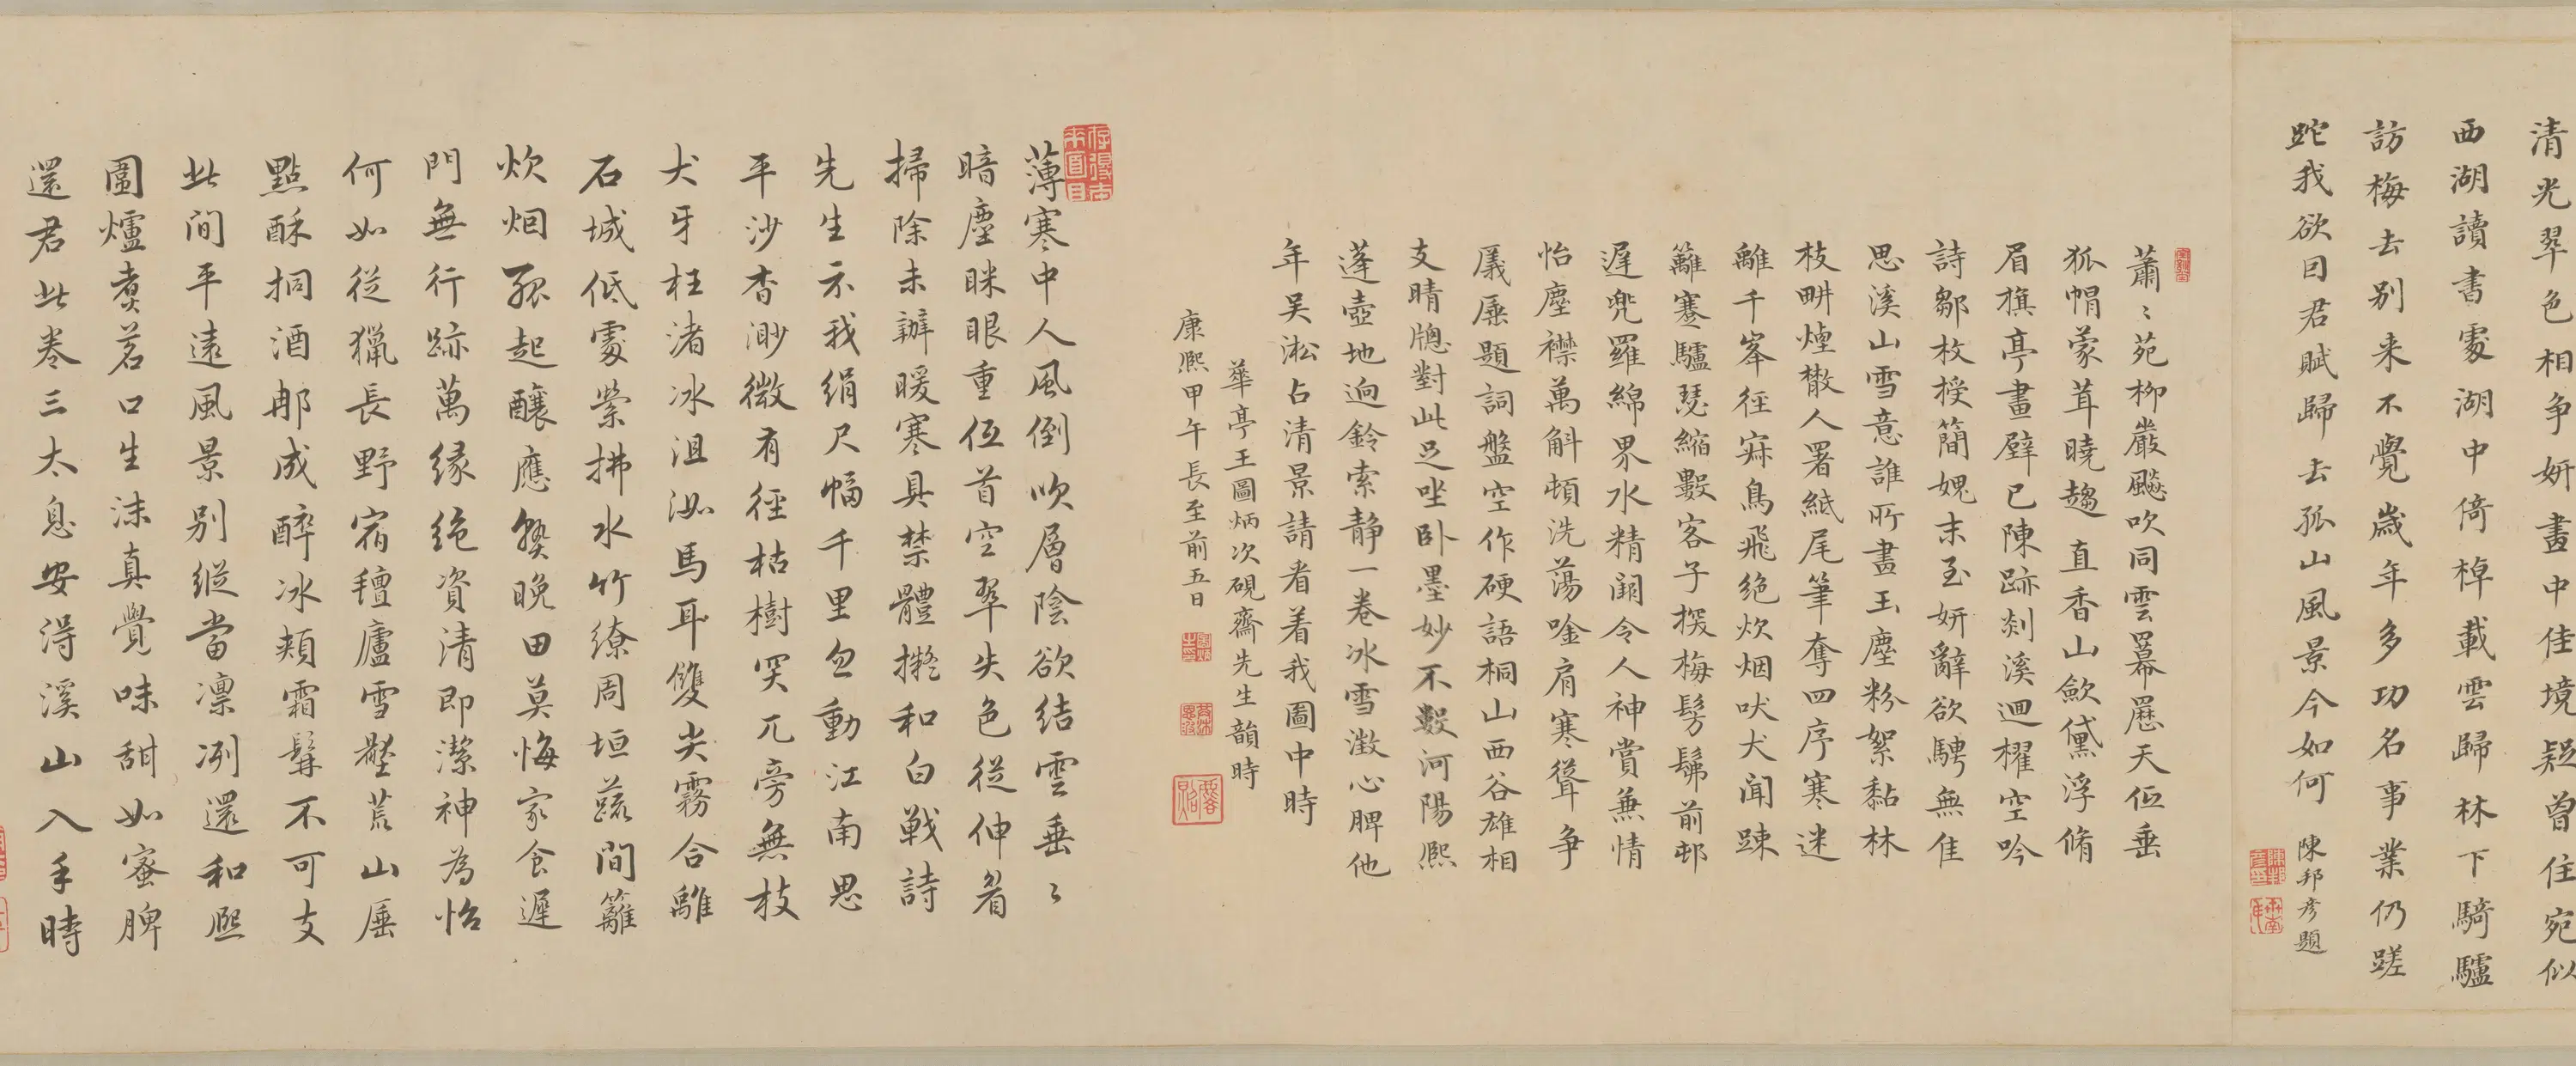 清光翠色相爭妍畫中佳境疑曾住宛似
西湖讀書處湖中倚棹載雲歸林下騎驢
訪梅去別来不覺歲年多功名事業仍蹉
跎我欲因君賦歸去孤山風景今如何
陳邦彦題
蕭〻苑柳嚴飈吹同雲羃䍥天低垂
狐帽蒙茸曉趨直香山歛黛浮脩
眉旗亭畫壁已陳跡剡溪迴櫂空吟
詩鄒枚授簡媿末至妍辭欲騁無隹
思溪山雪意誰所畫玉塵粉絮黏林
枝畊煙散人署紙尾筆奪四序寒迷
離千峯徑寂鳥飛絶炊烟吠犬闻踈
籬蹇驢瑟縮數客子探梅髣髴前邨
遲兜羅綿界水精闕令人神賞兼情
怡塵襟萬斛頓洗蕩唫肩寒聳爭
厜㕒題詞盤空作硬語桐山西谷雄相
支晴牕對此足唑卧墨妙不數河陽熙
蓬壺地逈鈴索静一卷冰雪澂心脾他
年吴淞占清景請看着我圖中時
華亭王圖炳次硯齋先生韻時
康熙甲午長至前五日
薄寒中人風倒吹層陰欲结雲垂〻
暗塵眯眼重低首空翠失色從伸眉
掃除未辦暖寒具禁體擬和白戰詩
先生示我絹尺幅千里忽動江南思
平沙杳渺微有徑枯樹突兀旁無枝
犬牙枉渚冰沮洳馬耳雙尖霧合離
石城低處縈拂水竹繚周垣疏間籬
炊烟孤起釀應熟晚田莫悔家食遲
門無行跡萬緣絶資清即潔神為怡
何如從獵長野宿氊廬雪壓荒山厜
點酥挏酒那成醉冰頰霜髯不可支
此間平遠風景别縱當凛冽還和熙
圍爐煑茗口生沫真覺味甜如蜜脾
還君此卷三太息安得溪山入手時